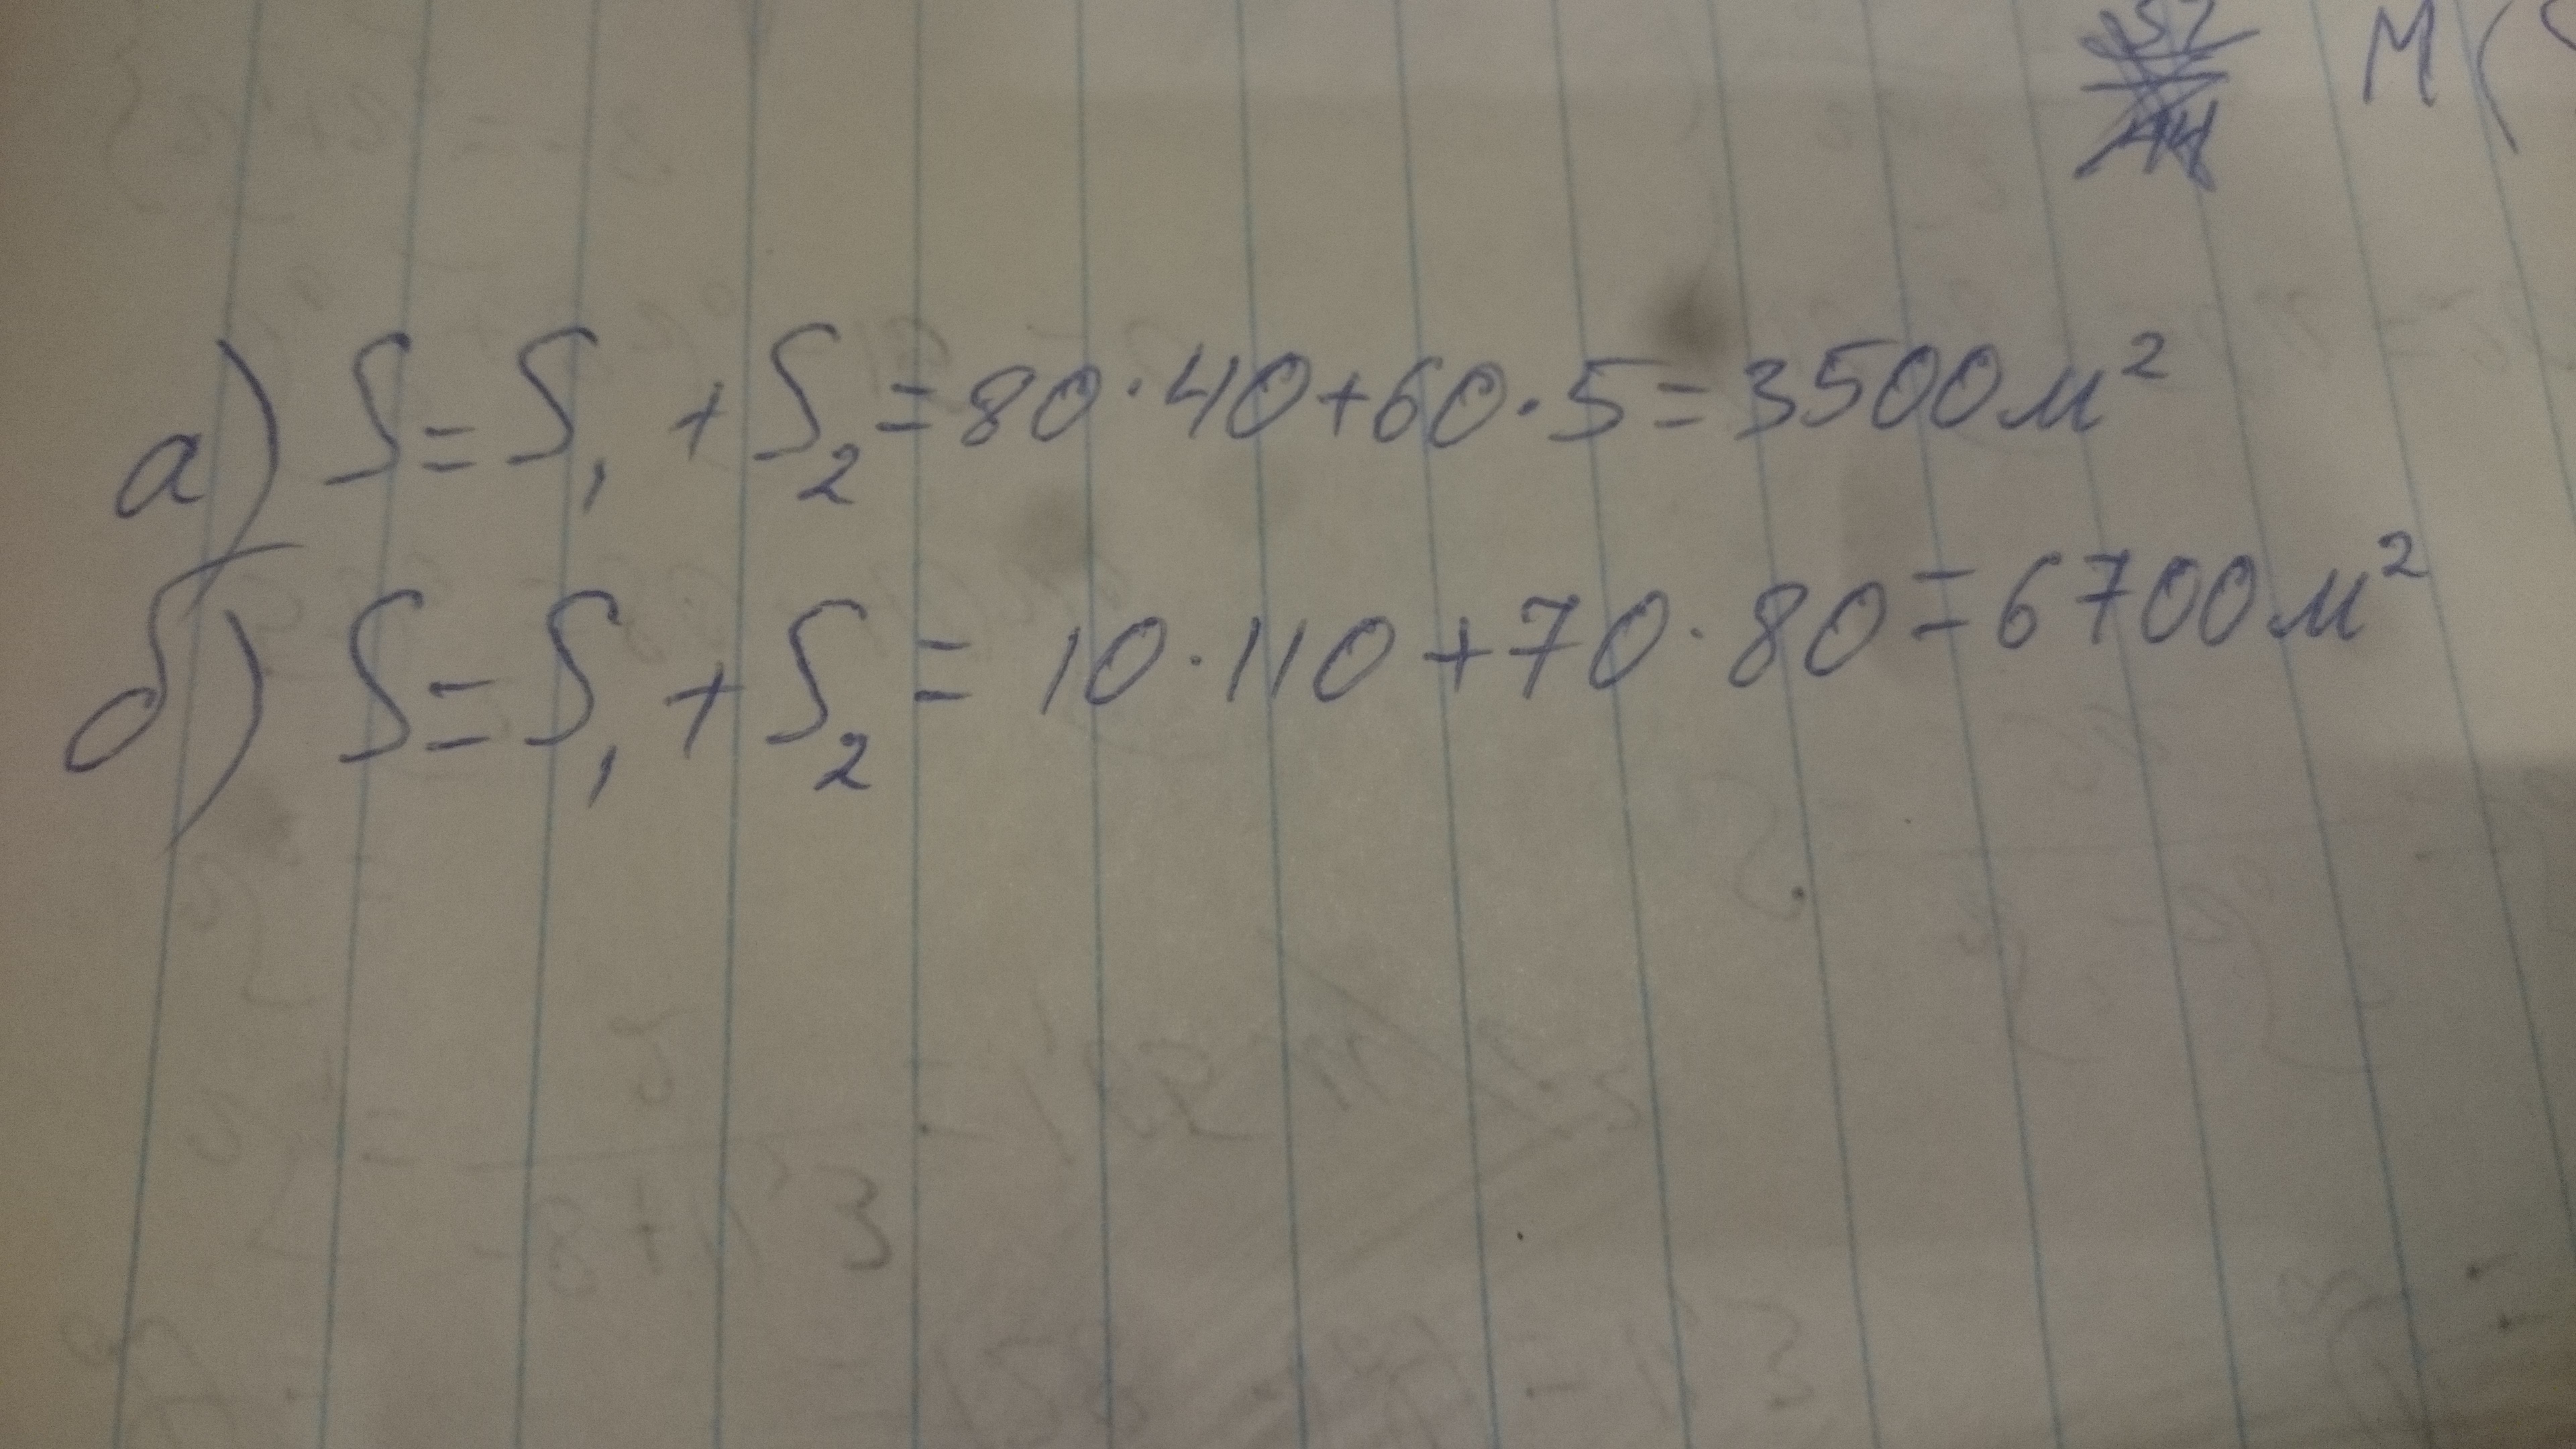 M (
а) S = S₁ + S₂ = 80 · 40 + 60 · 5 = 3500 м²
б) S = S₁ + S₂ = 10 · 110 + 70 · 80 = 6700 м²